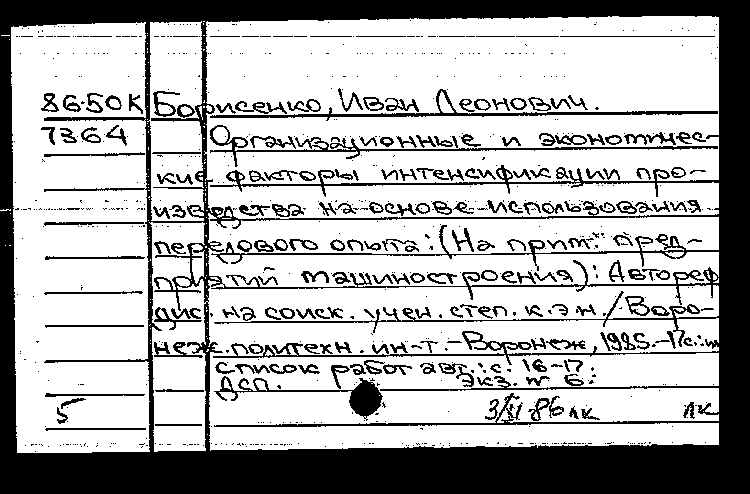 86-50К Борисенко, Иван Леонович.
7364 Организационные и экономичес-
кие факторы интенсификации про-
изведства на основе использования
передового опыта: (На прим. пред-
приятий машиностроения): Автореф
дис. на соиск. учен. степ. к.э.н. / Воро-
неж. политехн. ин-т. - Воронеж, 1985. - 17с.:
Список работ авт.: с. 16-17.
ДСП. Экз. № 6.
5 3/XI 86 лк лк